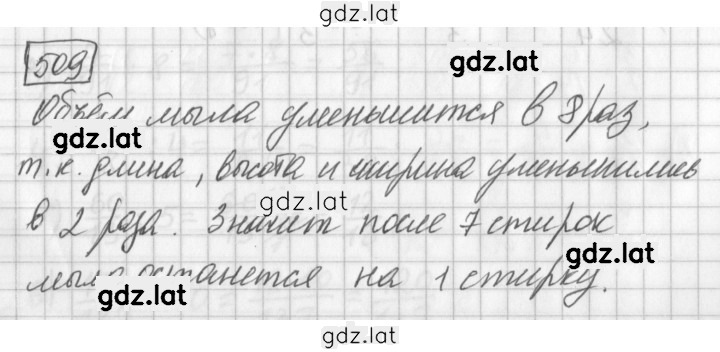 gdz.lat
509
gdz.lat
Объём мыла уменьшится в 8 раз,
gdz.lat
т.к. длина, высота и ширина уменьшились
gdz.lat
в 2 раза. Значит после 7 стирок
gdz.lat
мыла останется на 1 стирку.
gdz.lat
gdz.lat